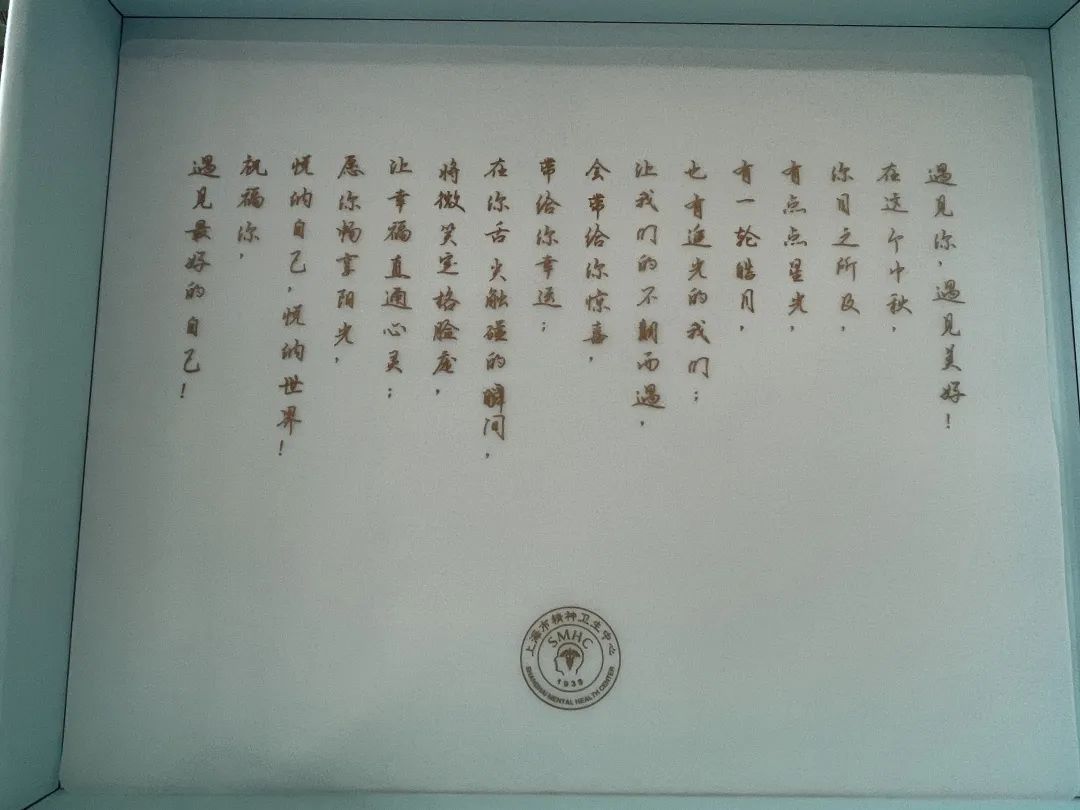 遇见你，遇见美好！
在这个中秋，
你目之所及，
有点点星光，
有一轮皓月，
也有追光的我们；
让我们的不期而遇，
会带给你惊喜，
带给你幸运；
在你舌尖触碰的瞬间，
将微笑定格脸庞，
让幸福直通心灵；
愿你畅享阳光，
悦纳自己，悦纳世界！
祝福你，
遇见最好的自己！
上海市精神卫生中心
SMHC
1935
SHANGHAI MENTAL HEALTH CENTER